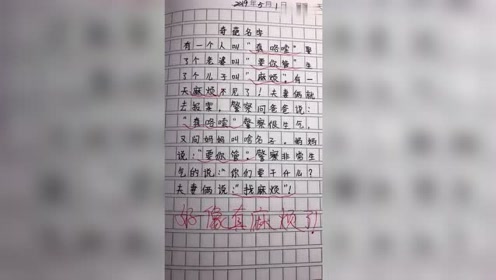 2019年5月1日
奇葩名字
有一个人叫“真啰嗦”娶
了个老婆叫“要你管”生
了个儿子叫“麻烦”。有一
天麻烦不见了！夫妻俩就
去报案，警察问爸爸说：
“真啰嗦”警察很生气，
又问妈妈叫啥名字，妈妈
说：“要你管”。警察非常生
气的说：“你们要干什么？
夫妻俩说：“找麻烦”！
好像真麻烦了！